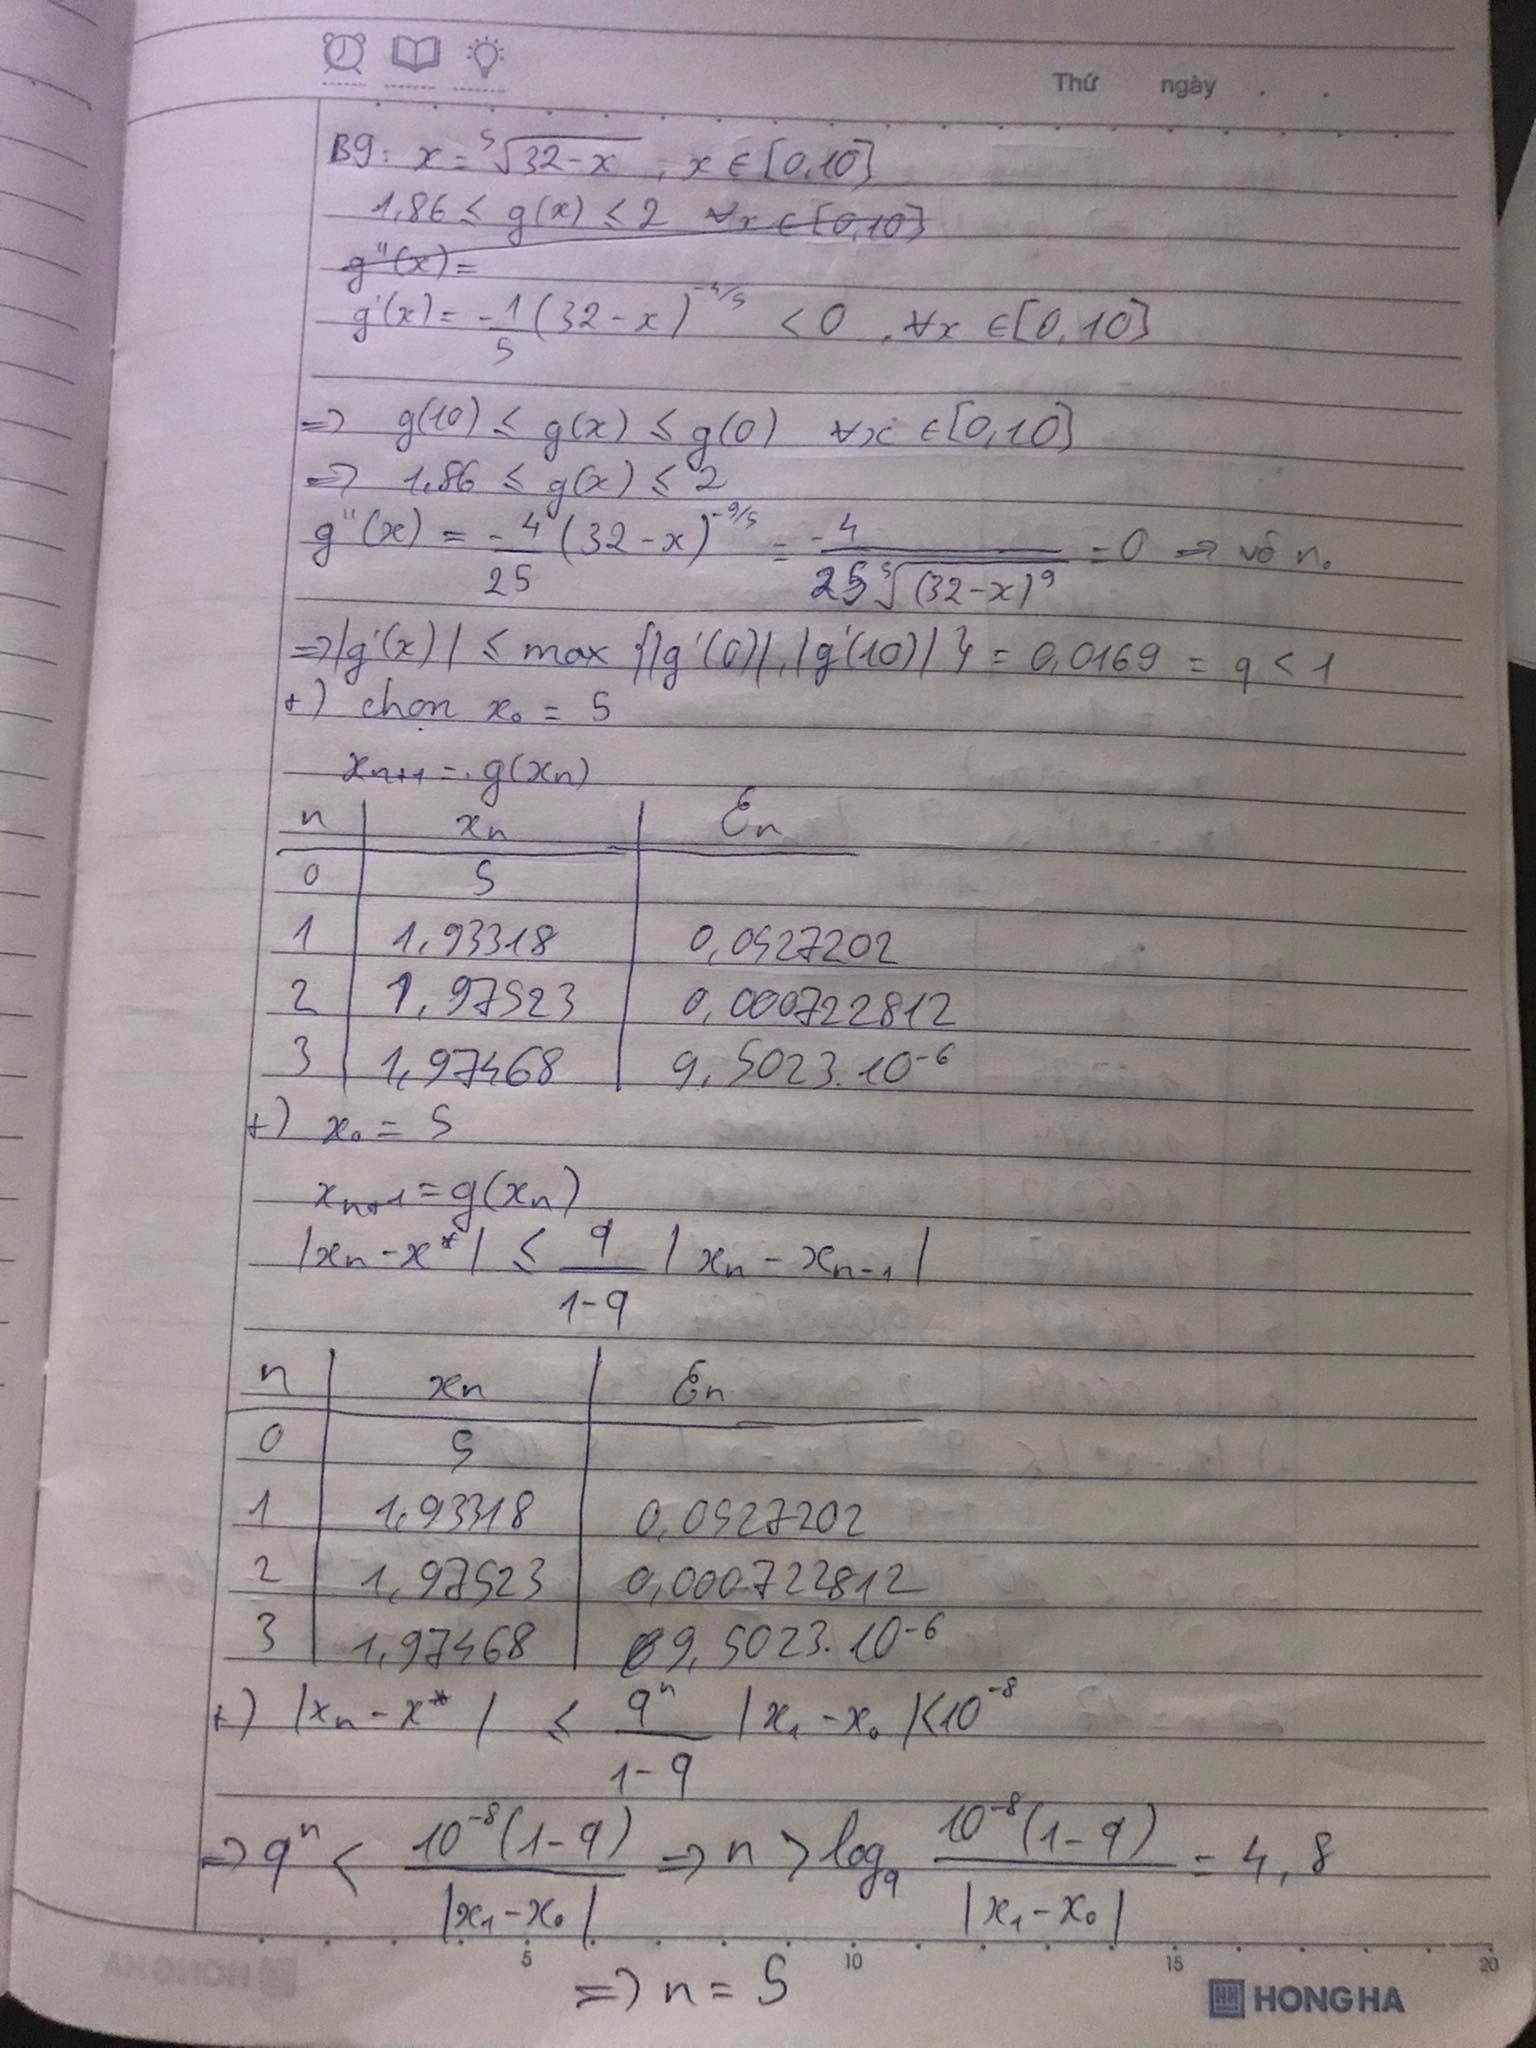 Thứ ngày . .
B9: x = ⁵√(32-x) , x ∈ [0,10]
1,86 ≤ g(x) ≤ 2 ∀x ∈ [0,10]
g''(x) =
g'(x) = -1/5 (32-x)^(-4/5) < 0 , ∀x ∈ [0,10]
=> g(10) ≤ g(x) ≤ g(0) ∀x ∈ [0,10]
=> 1,86 ≤ g(x) ≤ 2
g''(x) = -4/25 (32-x)^(-9/5) = -4/(25 ⁵√(32-x)⁹) = 0 => vô n.
=> |g'(x)| ≤ max {|g'(0)|, |g'(10)|} = 0,0169 = q < 1
+) chọn x₀ = 5
xₙ₊₁ = g(xₙ)
n xₙ Ɛₙ
0 5
1 1,93318 0,0527202
2 1,97523 0,000722812
3 1,97468 9,5023.10⁻⁶
+) x₀ = 5
xₙ₊₁ = g(xₙ)
|xₙ - x*| ≤ q/(1-q) |xₙ - xₙ₋₁|
n xₙ Ɛₙ
0 5
1 1,93318 0,0527202
2 1,97523 0,000722812
3 1,97468 9,5023.10⁻⁶
+) |xₙ - x*| ≤ qⁿ/(1-q) |x₁ - x₀| < 10⁻⁸
=> qⁿ < 10⁻⁸(1-q)/|x₁-x₀| => n > log_q 10⁻⁸(1-q)/|x₁-x₀| = 4,8
5 10 15 20
=> n = 5
HH HONG HA